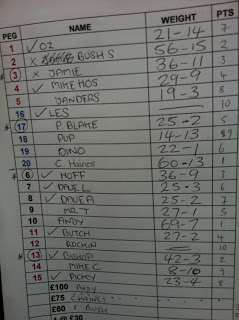 PEG NAME WEIGHT PTS
1 ✓ OZ 21-14 7
2 x BUSH S 56-15 2
* 3 x JAMIE 36-11 3
4 ✓ MIKE HOS 29-9 4
5 JANDERS 19-3 8
16 ✓ LES — 10
* 17 P. BLAKE 25-2 5
18 PUP 14-13 9
19 DINO 22-1 6
20 C. Haines 60-13 1
* 6 ✓ HUFF 36-9 3
7 ✓ DAVE L 25-3 6
8 ✓ DAVE A 25-2 7
9 MR T 27-1 5
10 ANDY 69-7 1
11 ✓ BUTCH 27-2 4
12 ROCHIN — 10
* 13 ✓ BISHOP 42-3 2
14 MIKE C 8-10 9
15 ✓ RICKY 23-4 8
£100 ANDY
£75 CHAINES
£60 S. BUSH
£30